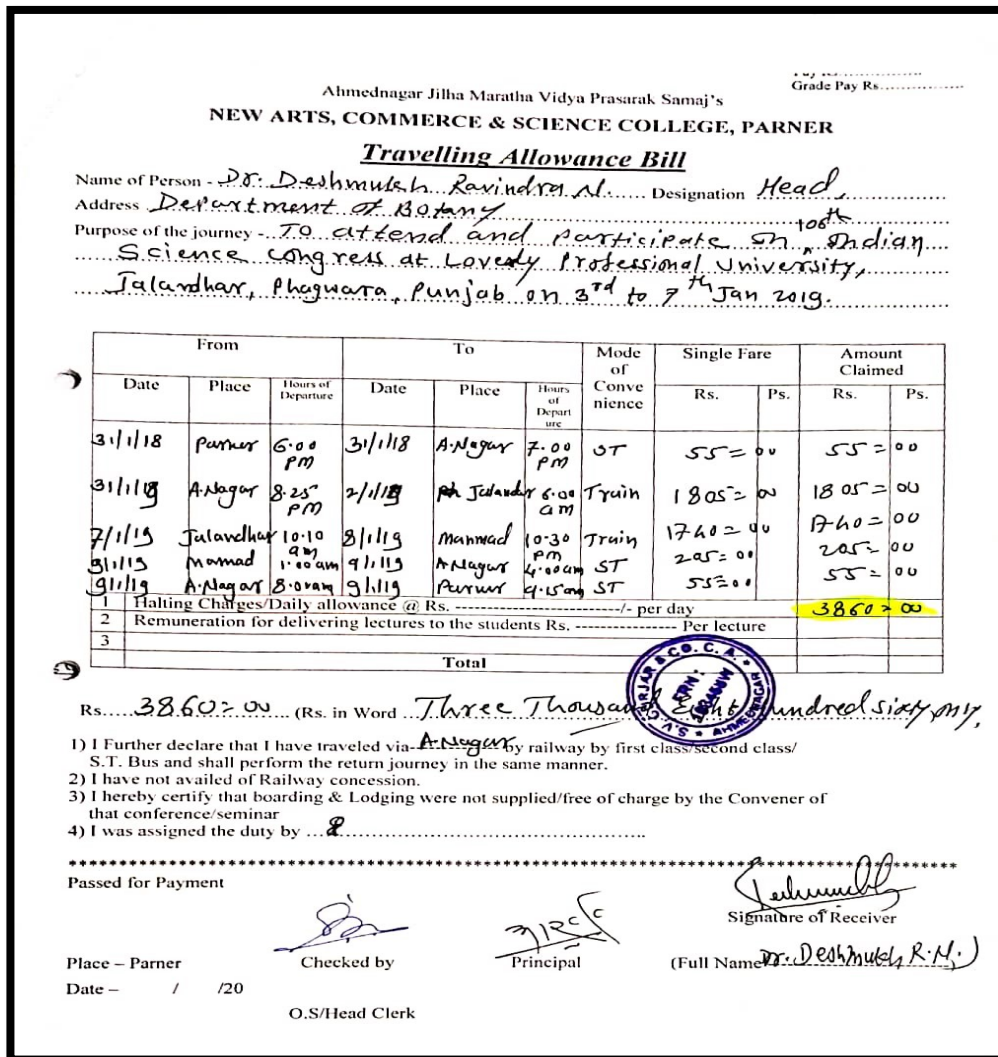 Grade Pay Rs................
Ahmednagar Jilha Maratha Vidya Prasarak Samaj's
NEW ARTS, COMMERCE & SCIENCE COLLEGE, PARNER
Travelling Allowance Bill
Name of Person - Dr. Deshmukh Ravindra N. Designation Head,
Address Department of Botany
Purpose of the journey - To attend and participate in 106th Indian
Science congress at Lovely Professional University,
Jalandhar, Phagwara, Punjab on 3rd to 7th Jan 2019.
From To Mode of Conve nience Single Fare Amount Claimed
Date Place Hours of Departure Date Place Hours of Depart ure Rs. Ps. Rs. Ps.
31/1/18 Parner 6.00 PM 31/1/18 A.Nagar 7.00 PM ST 55=00 55=00
31/1/18 A.Nagar 8.25 PM 2/1/19 Jalandar 6.00 am Train 1805=00 1805=00
7/1/19 Jalandhar 10.10 am 8/1/19 Manmad 10.30 PM Train 1740=00 1740=00
9/1/19 Mamad 1.00am 9/1/19 A.Nagar 4.00am ST 205=00 205=00
9/1/19 A.Nagar 8.00am 9/1/19 Parner 9.15am ST 55=00 55=00
1 Halting Charges/Daily allowance @ Rs. ------------------------/- per day 3860=00
2 Remuneration for delivering lectures to the students Rs. --------------- Per lecture
3
Total
S.V. GURJAR & CO. C. A. * AHMEDNAGAR *
FRN:
Rs.....3860=00 (Rs. in Word ...Three Thousand Eight hundred sixty only.
1) I Further declare that I have traveled via- A.Nagar by railway by first class/second class/
S.T. Bus and shall perform the return journey in the same manner.
2) I have not availed of Railway concession.
3) I hereby certify that boarding & Lodging were not supplied/free of charge by the Convener of
that conference/seminar
4) I was assigned the duty by ...
Passed for Payment
Signature of Receiver
Place – Parner Checked by Principal (Full Name Dr. Deshmukh R.N.)
Date – / /20
O.S/Head Clerk